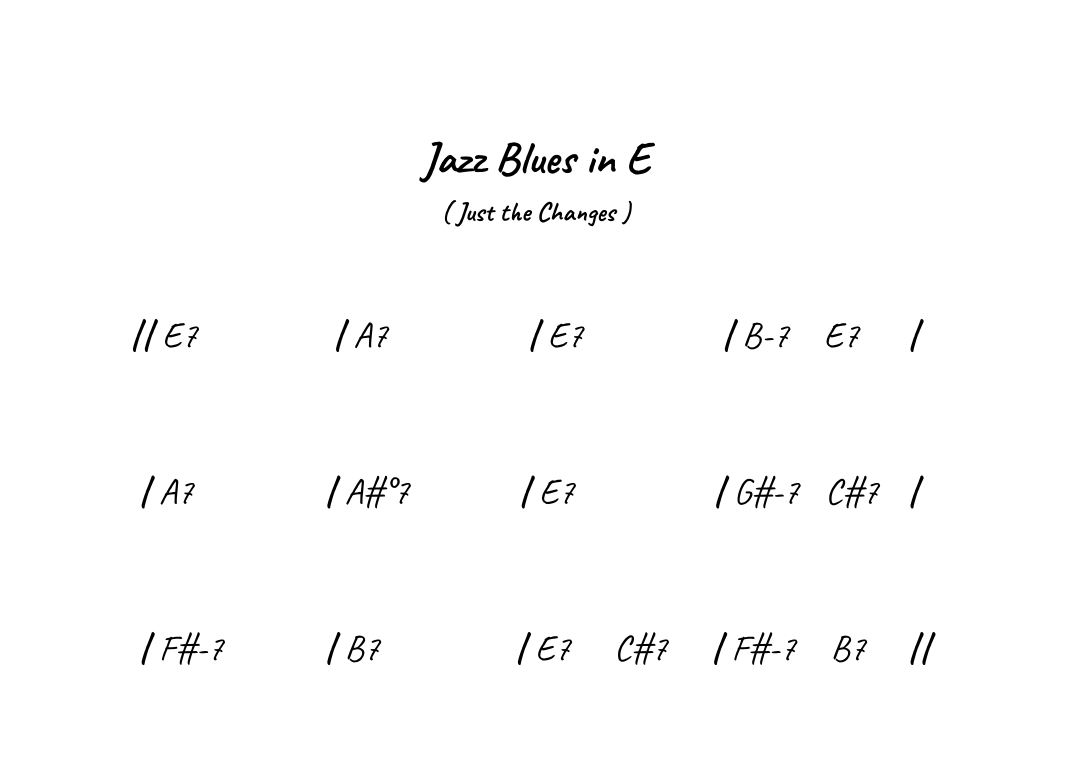 Jazz Blues in E
( Just the Changes )
|| E7 | A7 | E7 | B-7 E7 |
| A7 | A#°7 | E7 | G#-7 C#7 |
| F#-7 | B7 | E7 C#7 | F#-7 B7 ||